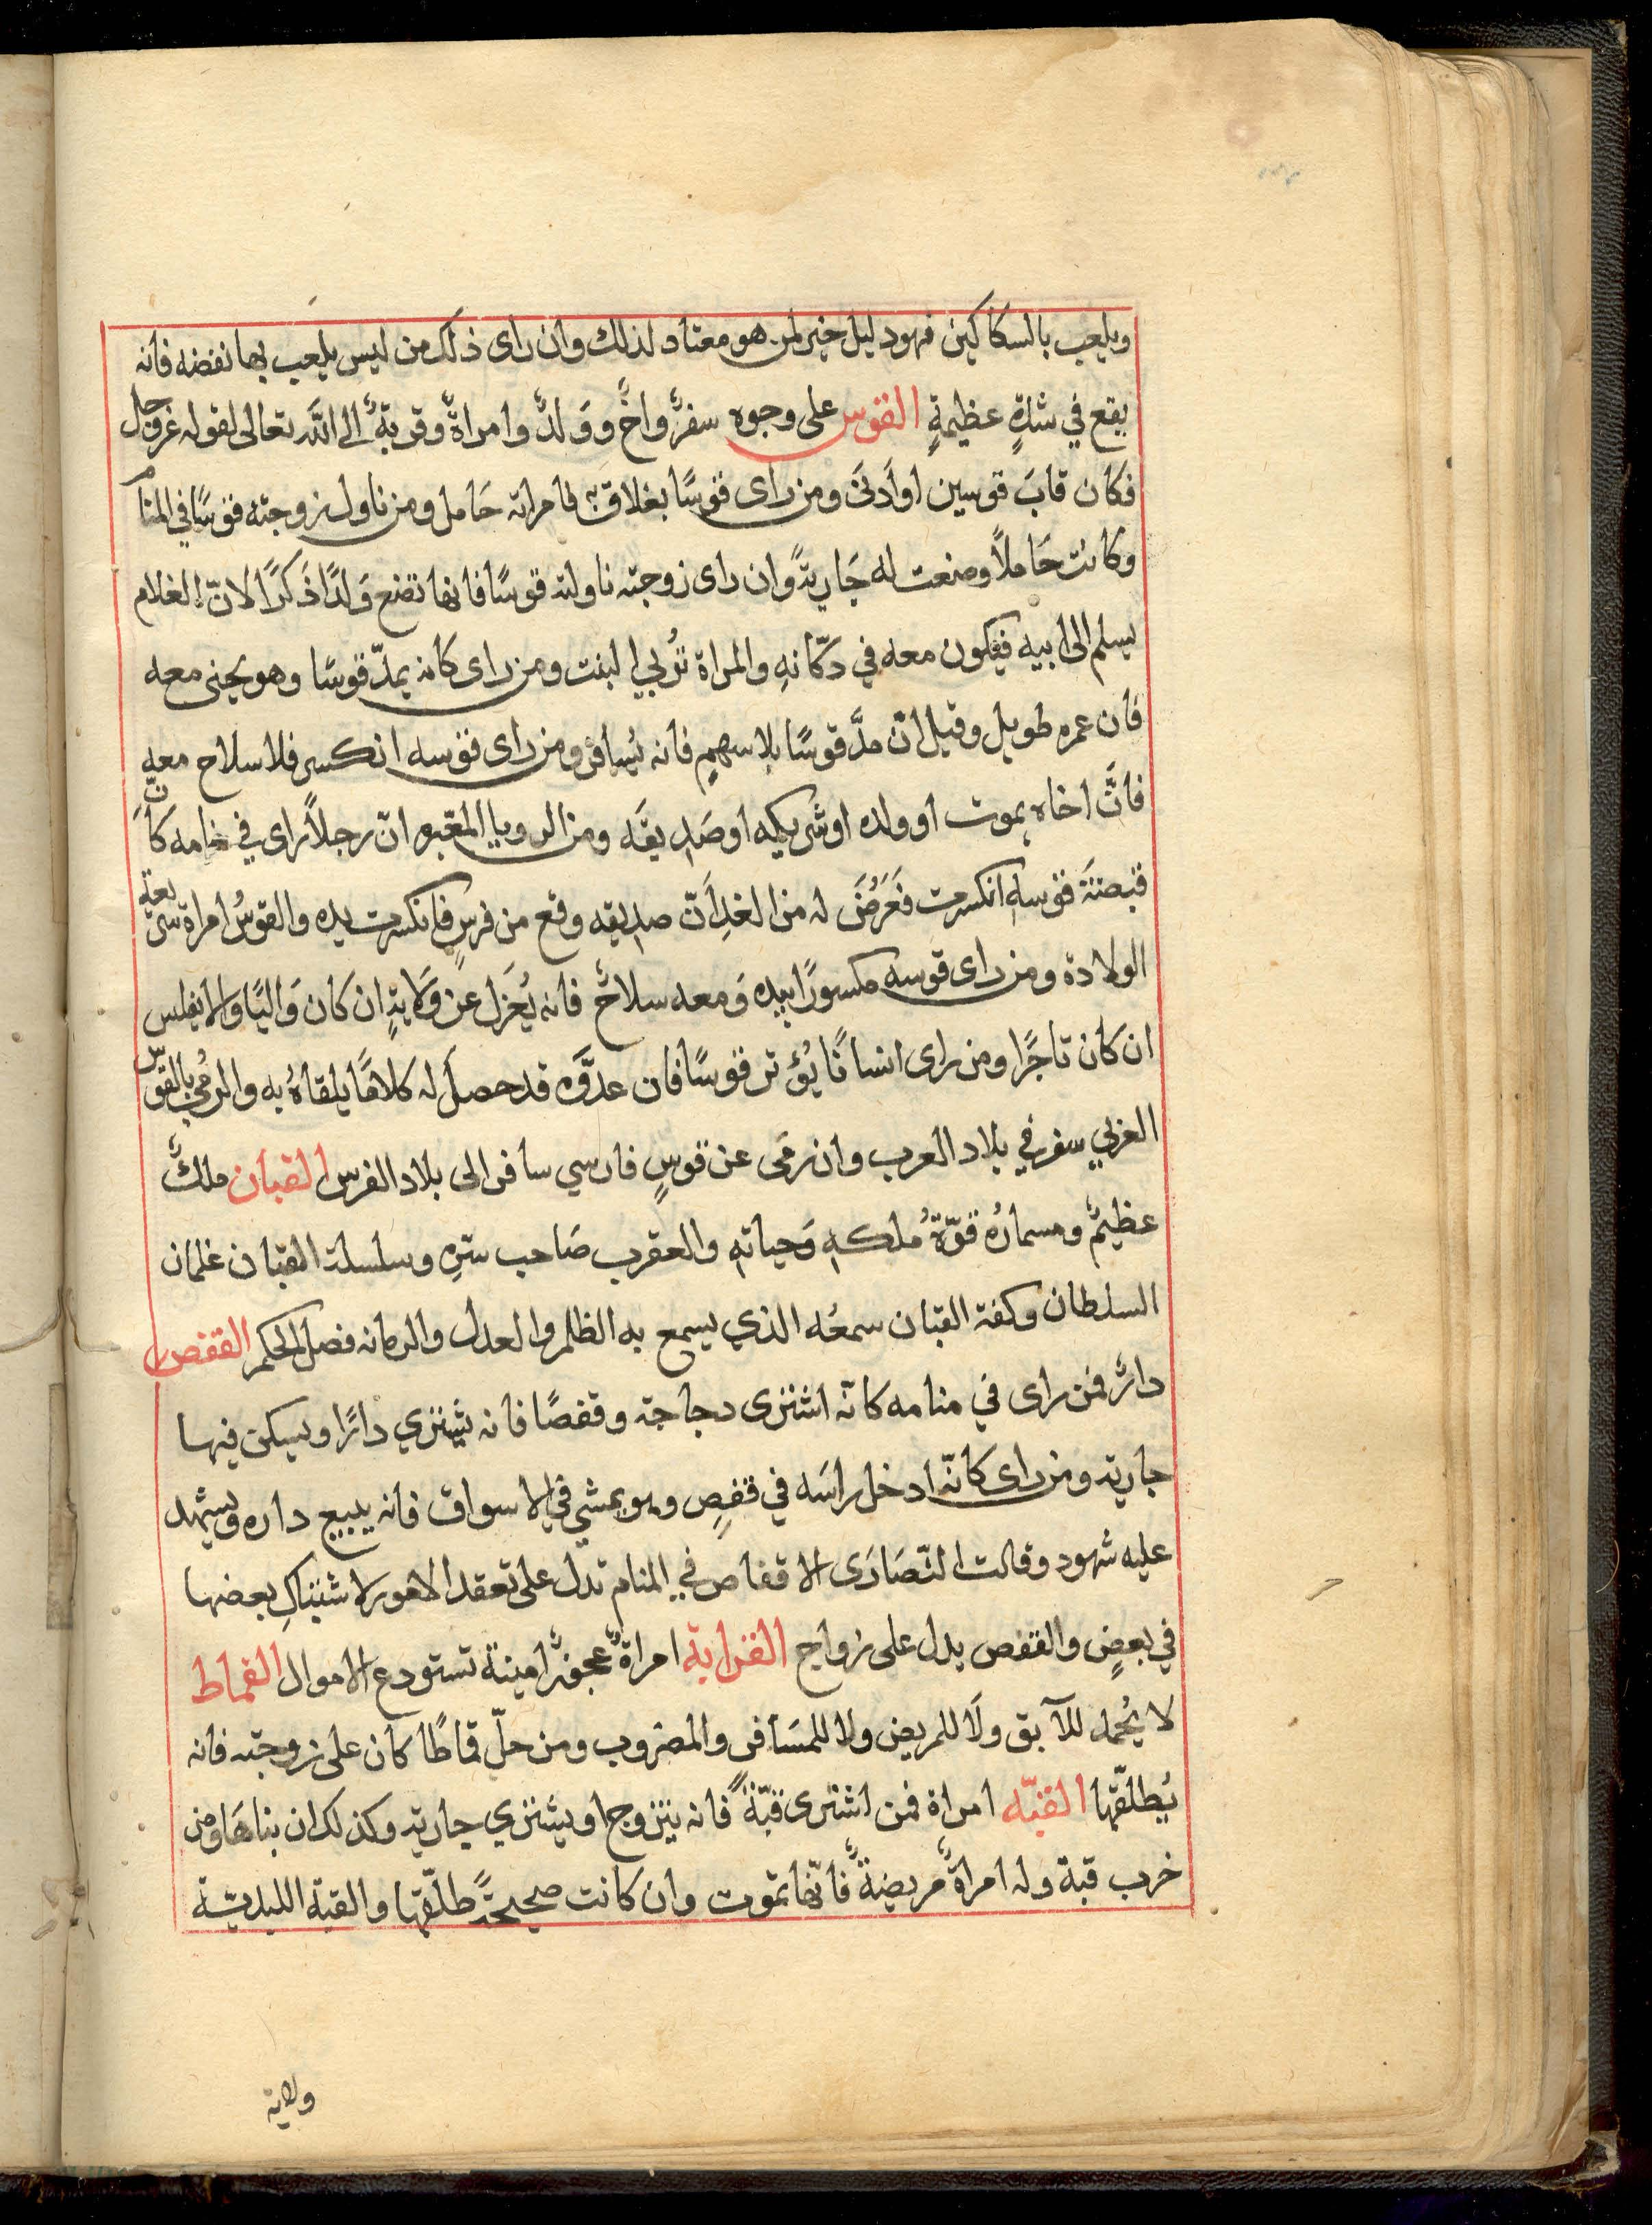 ويلعب بالسكاكين فهو دليل خير لمن هو معتاد لذلك وان راى ذلك من ليس يلعب بها نفضه فانه
يقع في شدةٍ عظيمةٍ القوس على وجوه سفرٌ واخٌ ووَلدٌ وامراةٌ وقربةٌ الى الله تعالى لقوله عز وجل
فكان قابَ قوسين او أدنَى ومن راى قوسًا بغلاق فامراته حَامل ومن ناول زوجته قوسًا في المنام
وكانت حَاملاً وصنعت له جَاريةً وان راى زوجته ناولته قوسًا فانها تضع وَلدًا ذَكرًا لانّ الغلام
يسلم الى ابيه فيكون معه في دكّانهِ والمراة تُربي البنت ومن راى كانه يمدّ قوسًا وهو يجنى معه
فان عمره طويل وقيل انّ مدَّ قوسًا بلا سهمٍ فانه يُسافر ومن راى قوسه انكسر فلا سلاح معه
فانّ اخاه يموت او ولده او شريكه او صَديقَه ومن الرويا المعبره انّ رجلاً راى في منامه كانّ
قبضتَة قوسهِ انكسرت فَعَرَضَ له من الغدِ أنّ صديقه وقع من فرسٍ فانكسرت يده والقوسُ امراة سريعة
الولادة ومن راى قوسه مكسورًا بيده وَمعه سلاحٌ فانه يُعزل عن وَلايةٍ ان كان وَاليًا والا يفلس
ان كان تاجرًا ومن راى انسانًا يُؤتر قوسًا فان عدوَّه قد حصل له كلامًا يلقاهُ به والرمي بالقوس
العربي سفر في بلاد العرب وان رَمى عن قوسٍ فارسي سافر الى بلاد الفرس القبان ملكٌ
عظيمٌ ومسمارُه قوّةُ مُلكهِ وَحياتهِ والعقرب صَاحب سّرِه وسلسلة القبّان غلمان
السلطان وكفة القبان سمعُه الذي يسمع به الظلم والعدل والرمانه فصل الحكم القفص
دارٌ فمن راى في منامه كانّه اشترى دجاجة وقفصًا فانه يشتري دارًا ويسكن فيها
جارية ومن راى كانّه ادخل راسَه في قفصٍ وهو يمشي في الاسواق فانه يبيع داره ويشهد
عليه شهود وقالت النّصَارَى الاقفاص في المنام تدل على تعقد الامور لاشتباكِ بعضها
في بعضٍ والقفص يدل على زواج القرابة امراةٌ عجوزٌ امينة تستودع الاموال القماط
لا يُحمد للآبق ولَا للمريض ولا للمسَافر والمضروب ومن حلّ قماطًا كان على زوجته فانه
يُطلّقها القبّه امراة فمن اشترى قبّةً فانه يتزوج او يشتري جارية وكذلك ان بناهَا ومن
خرب قبة وله امراةٌ مريضةٌ فانّها تموت وان كانت صحيحةً طلّقها والقبة اللبديّة
ولاية